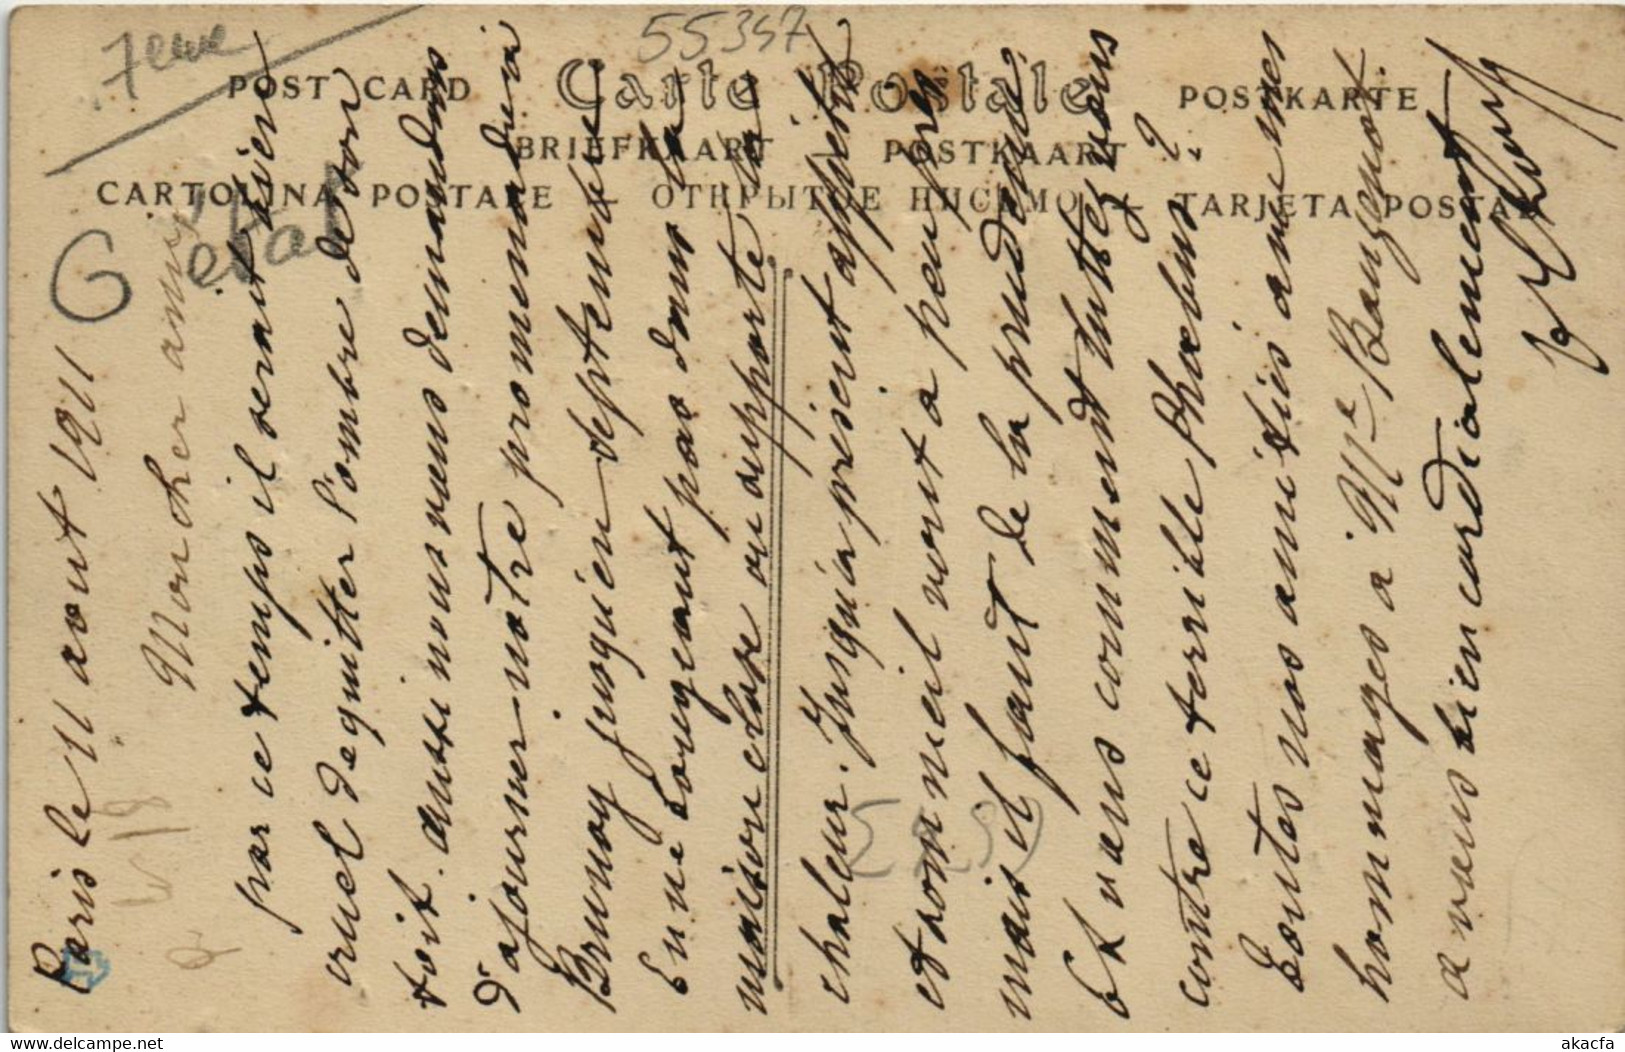 55347
7eme
POST CARD Carte Postale POSTKARTE
BRIEFKAART POSTKAART
CARTOLINA POSTALE - ОТКРЫТОЕ ПИСЬМО - TARJETA POSTAL
G etat
Paris le 11 aout 1911
Mon cher ami,
par ce temps il serait bien
cruel de quitter l'ombre de son
toit. aussi nous vous demandons
d'ajourner notre promenade à
Brunoy jusqu'en septembre.
En ne bougeant pas dans la
maison close on supporte la
chaleur. Jusqu'à présent appétit
et sommeil vont à peu près
mais il faut de la prudence
Et vous comment luttez vous
contre ce terrible Phoebus?
Toutes nos amitiés avec mes
hommages à Mme
à vous bien cordialement
akacfa